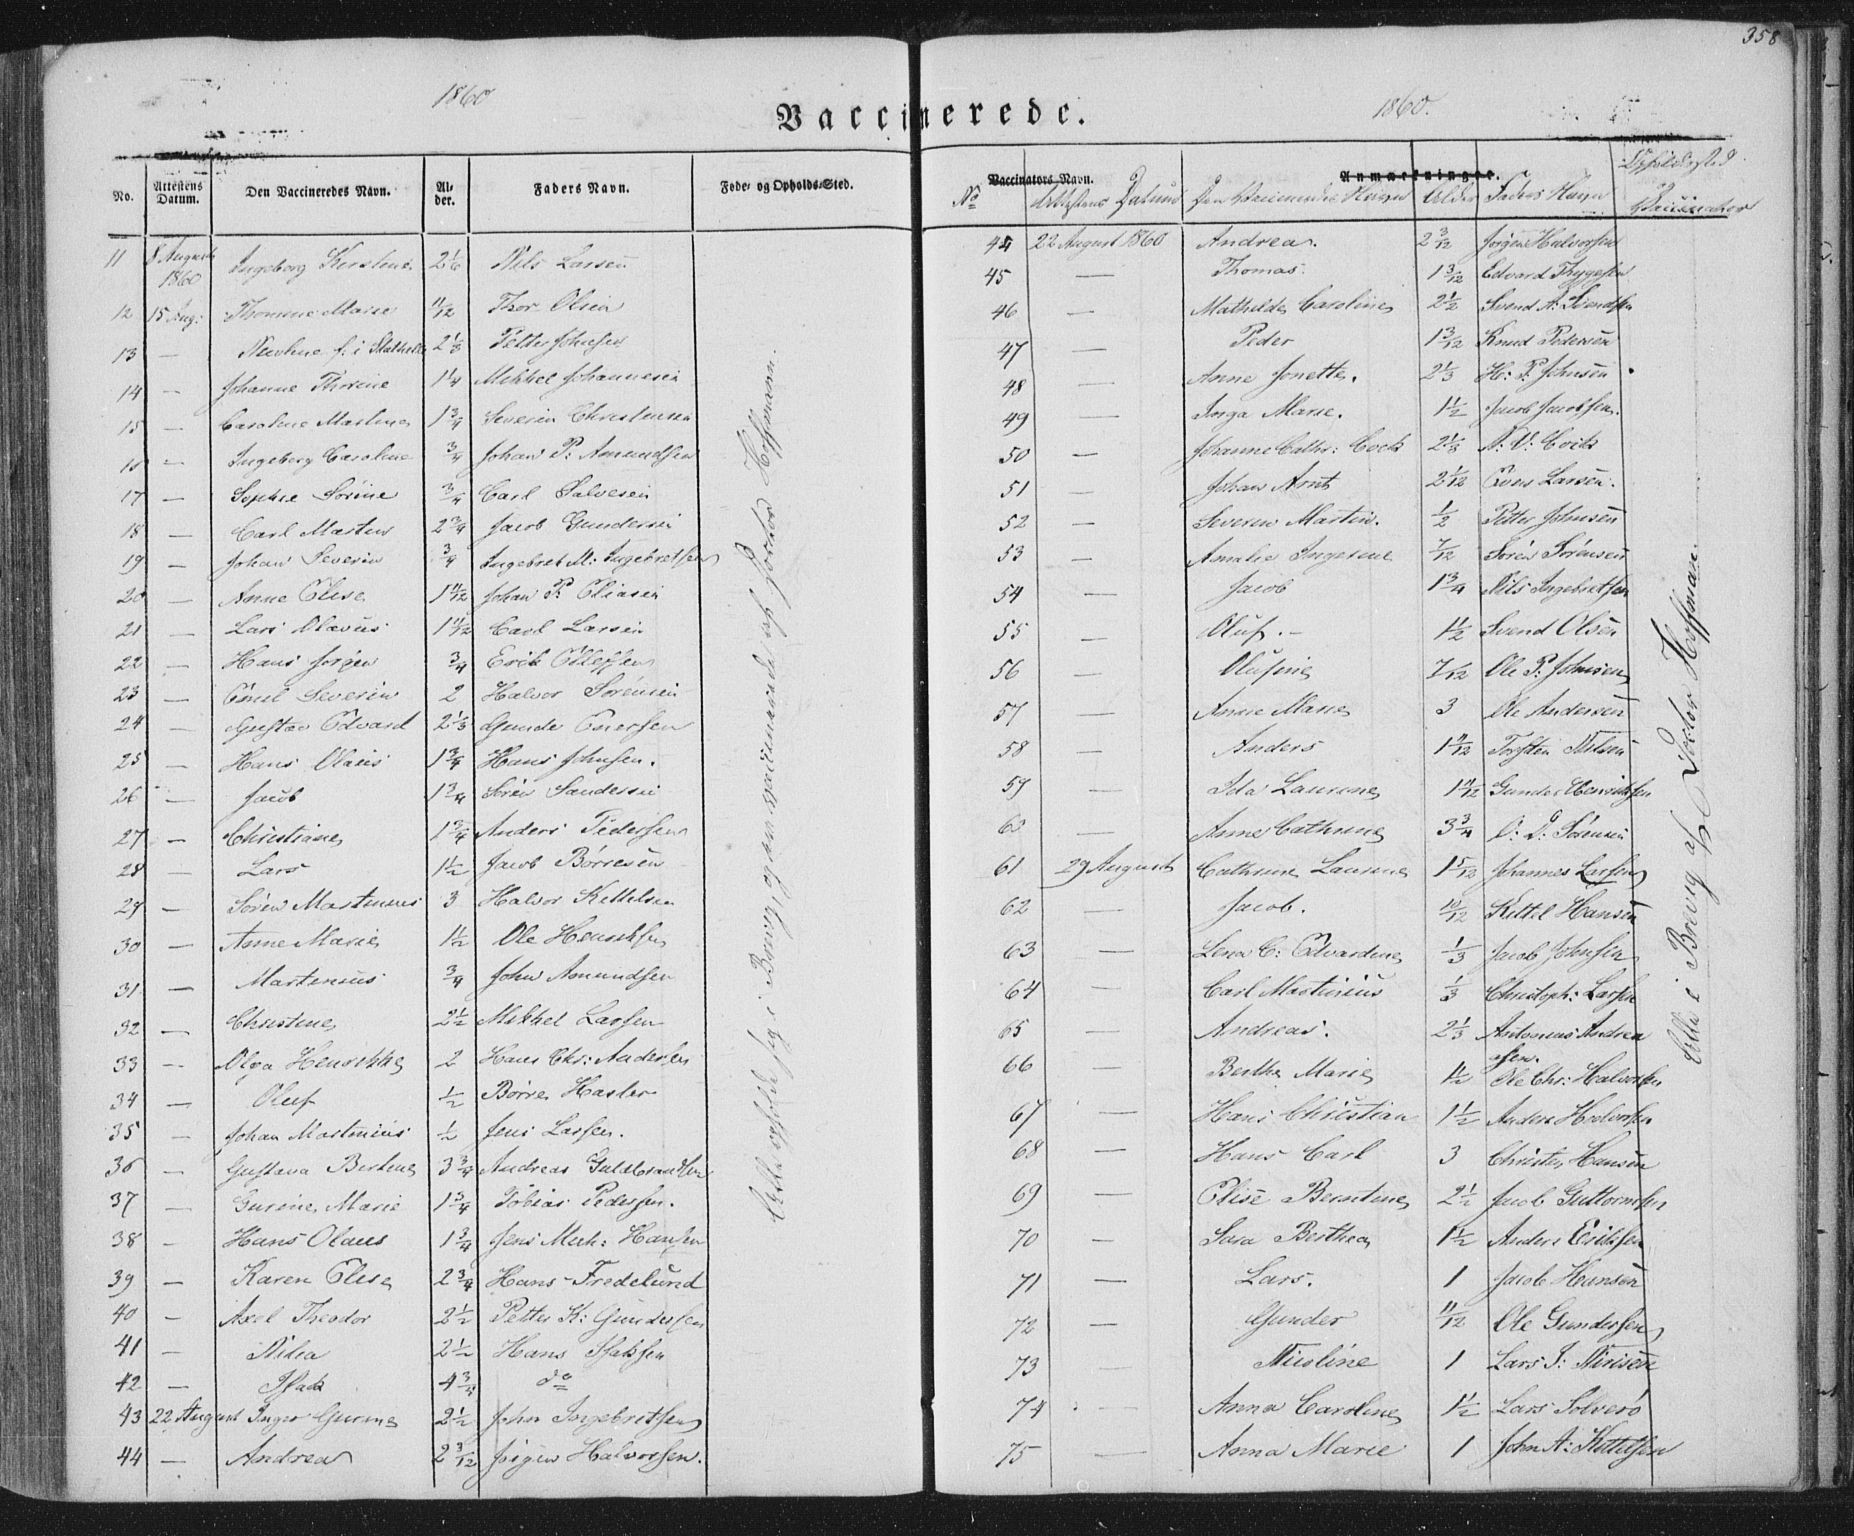 358
1860
1860.
Vaccinerede.
No. Attestens Datum. Den Vaccineredes Navn. Alder. Faders Navn. Føde- og Opholds-Sted.
11 8 August 1860 Ingeborg Kirstine 2 1/6 Nils Larsen
12 15 Aug: Thomine Marie 11/12 Thor Olsen
13 — f: i Stathelle 2 1/3 Petter Johnsen
14 — Johanne Thorine 1 1/4 Mikkel Johannesen
15 — Caroline Martine 1 3/4 Severin Christensen
16 — Ingeborg Caroline 3/4 Johan P: Amundsen
17 — Sophie Sorine 3/4 Carl Salvesen
18 — Carl Martin 2 3/4 Jacob Gundersen
19 — Johan Severin 3/4 Ingebret M: Ingebretsen
20 — Anne Elise 1 11/12 Johan P. Eliasen
21 — Lars Olavus 1 11/12 Carl Larsen
22 — Hans Jørgen 3/4 Erik Ellefsen
23 — Emil Severin 2 Halvor Sørensen
24 — Gustav Edvard 2 1/3 Gunde Enersen
25 — Hans Olaus 1 3/4 Hans Johnsen.
26 — Jacob 1 3/4 Sören Sandersen
27 — Christiane 1 3/4 Anders Pedersen
28 — Lars 1 1/2 Jacob Børresen
29 — Sören Martinius 3 Halvor Kettelsen
30 — Anne Marie 1 1/2 Ole Henriksen
31 — Martinius 3/4 John Amundsen
32 — Christine 2 1/2 Mikkel Larsen
33 — Olga Henrikke 2 Hans Chr: Andersen
34 — Oluf 1/2 Børre Hasler
35 — Johan Martinius 1/2 Jens Larsen.
36 — Gustava Bertine 3 3/4 Andreas Guldbrandsen
37 — Gurine Marie 1 3/4 Tobias Pedersen.
38 — Hans Olaus 1 3/4 Jens Mich: Hansen
39 — Karen Elise 2 3/4 Hans Fredelund
40 — Axel Theodor 2 1/2 Petter K: Gundersen
41 — Rikka 2 1/2 Hans Isaksen
42 — Isak 4 3/4 do
43 22 August Inger Gurine 2 1/2 John Ingebretsen
44 — Andrea 2 3/12 Jörgen Halvorsen.
Alle opholde sig i Brevig, og ere vaccinerede af Doctor Hoffmann.
Vaccinators Navn. Anmærkninger.
No Attestens Datum Den Vaccineredes Navn Alder Faders Navn Opholdssted Vaccinator
44 22 August 1860 Andrea. 2 3/12 Jörgen Halvorsen
45 — Thomas. 1 3/12 Edvard Thygesen
46 — Mathilde Caroline 2 1/2 Svend A: Svendsen
47 — Peder 1 3/12 Knud Pedersen
48 — Anne Jonette. 2 1/3 H: P. Johnsen
49 — Inga Marie. 1 1/2 Jacob Jacobsen.
50 — Johanne Cathr: Cock 2 1/3 N: V: Cock
51 — Johan Arnt 2 1/12 Even Larsen.
52 — Severin Martin. 1/2 Petter Johnsen
53 — Amalie Ingerine 7/12 Sören Sörensen
54 — Jacob 1 3/4 Nils Ingebretsen
55 — Oluf. — 1 1/2 Svend Olsen
56 — Olufine 7/12 Ole P. Johnsen
57 — Anne Marie 3 Ole Andersen
58 — Anders 1 11/12 Torsten Nilsen
59 — Ida Laurine 1 11/12 Gunder Henriksen
60 — Anne Cathrine 3 3/4 Sörensen
61 29 August Cathrine Laurine 1 5/12 Johannes Larsen
62 — Jacob. 10/12 Kittel Hansen
63 — Lena C: Edvardine 1/3 Jacob Johnsen
64 — Carl Martinius 1/3 Christoph: Larsen
65 — Andreas. 2 1/3 Antonius Andrea
sen.
66 — Berthe Marie 1 1/2 Ole Chr: Halvorsen
67 — Hans Christian 1 1/2 Anders Halvorsen
68 — Hans Carl 3 Christen Hansen
69 — Elise Berntine 2 1/2 Jacob Guttormsen
70 — Sara Berthea 1 1/2 Anders Eriksen
71 — Lars. 1 Jacob Hansen
72 — Gunder 11/12 Ole Gundersen
73 — Nicoline 1 Lars J:
74 — Anna Caroline 1 1/2 Lars Solverö
75 — Anna Marie 1 John A: Kittelsen
Alle i Brevig af Doctor Hoffman.